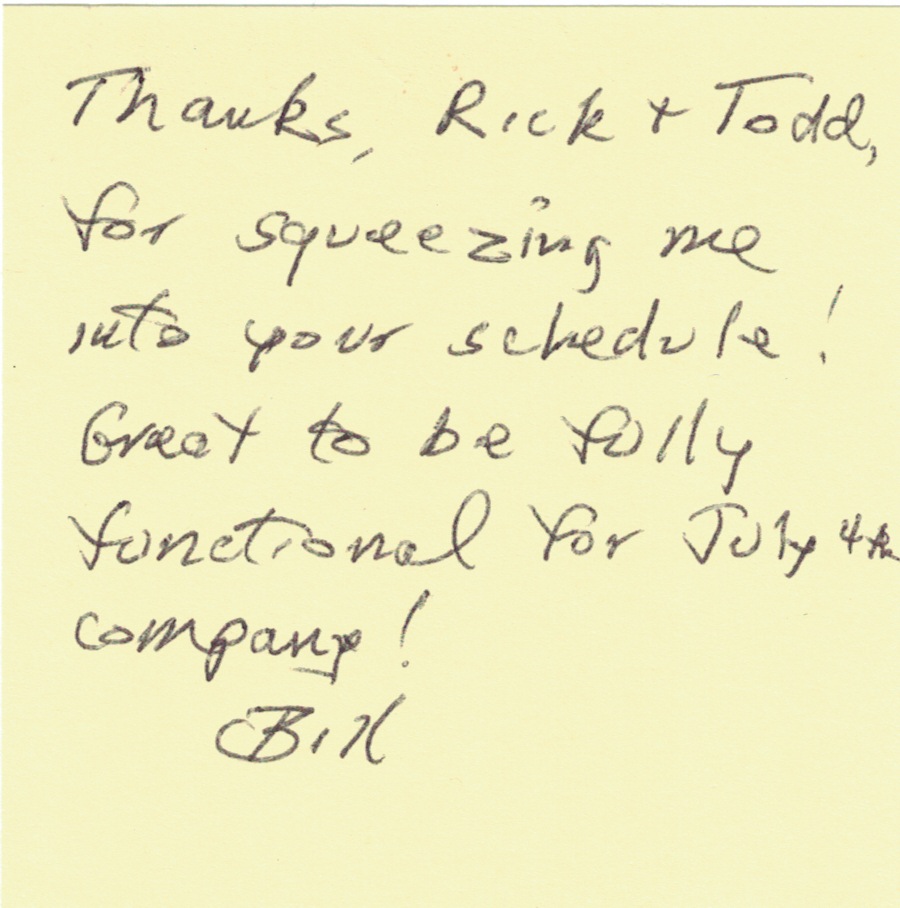 Thanks, Rick + Todd,
for squeezing me
into your schedule!
Great to be fully
functional for July 4th
company!
Bill